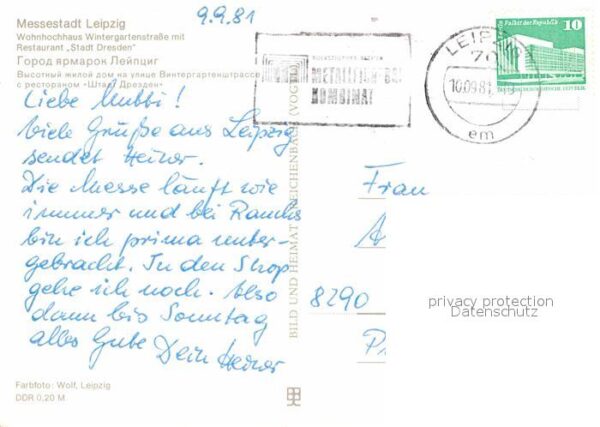 Messestadt Leipzig
Wohnhochhaus Wintergartenstraße mit
Restaurant „Stadt Dresden"
Город ярмарок Лейпциг
Высотный жилой дом на улице Винтергартенштрассе
с рестораном «Штадт Дрезден»
9.9.81
Liebe Mutti!
Viele Grüße aus Leipzig
sendet Heiner.
Die Messe läuft wie
immer und bei
bin ich prima unter-
gebracht. In den Shop
gehe ich noch. Also
dann bis Sonntag
alles Gute Dein Heiner
Farbfoto: Wolf, Leipzig
DDR 0,20 M
BILD UND HEIMAT REICHENBACH (VOGTL)
KOMBINAT
LEIPZIG
70
10.09.81
em
Palast der Republik
10
Frau
8290
privacy protection
Datenschutz